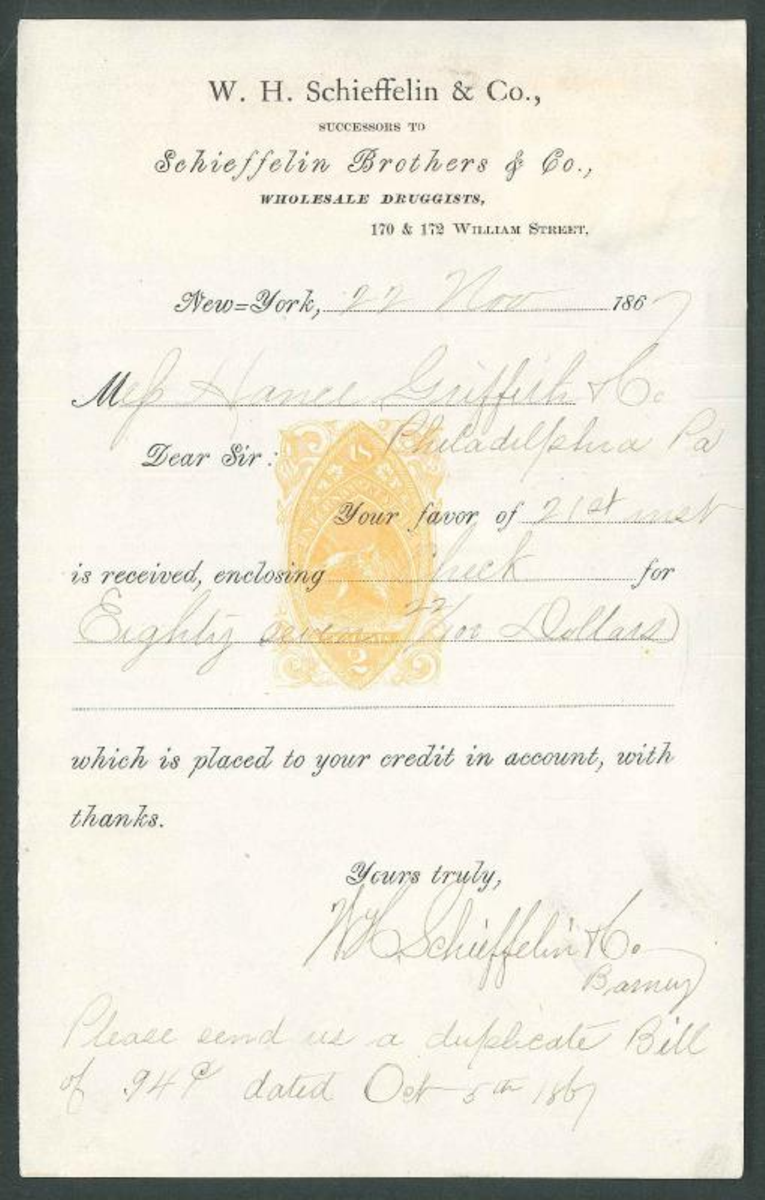 W. H. Schieffelin & Co.,
SUCCESSORS TO
Schieffelin Brothers & Co.,
WHOLESALE DRUGGISTS,
170 & 172 WILLIAM STREET.
New=York, 22 Nov 1867
Mess Hance Griffith & Co
Philadelphia Pa
Dear Sir:
Your favor of 21st inst
is received, enclosing Check for
Eighty seven 22/100 Dollars
2
which is placed to your credit in account, with
thanks.
Yours truly,
WH Schieffelin & Co
Barney
Please send us a duplicate Bill
of dated Oct 5th 1867